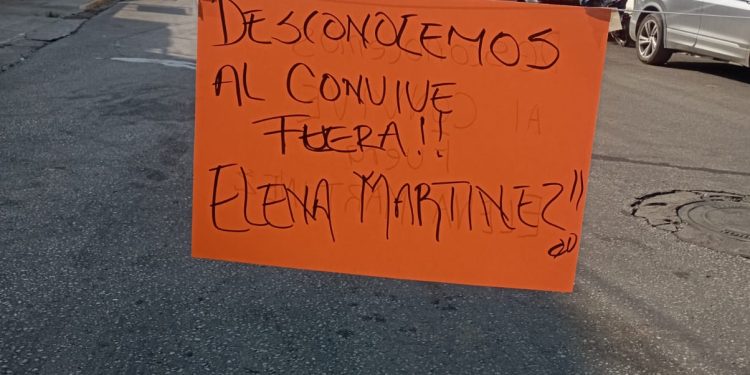 DESCONOCEMOS
AL CONVIVE
FUERA!!
ELENA MARTINEZ!!